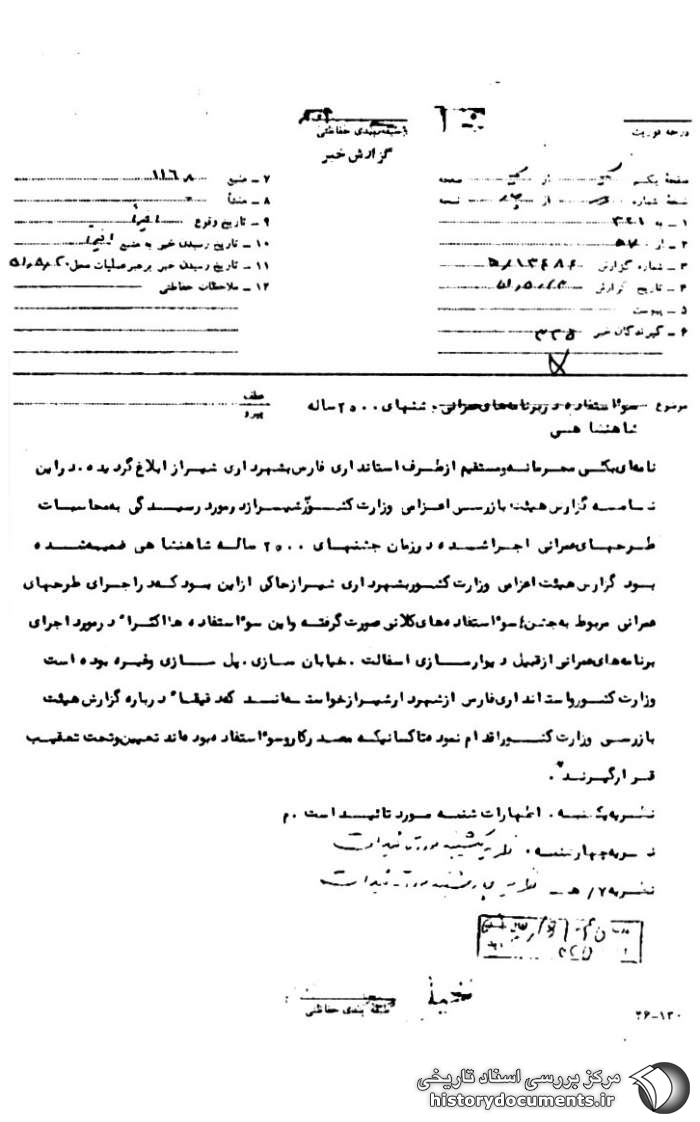 درجه فوریت
طبقه‌بندی حفاظتی
گزارش خبر
صفحهٔ یکم از صفحه
نسخهٔ شماره از نسخه
۱ ـ به ۳۴۱
۲ ـ از ۵۷
۳ ـ شماره گزارش
۴ ـ تاریخ گزارش
۵ ـ پیوست
۶ ـ گیرندگان خبر ۳۲۵
۷ ـ منبع ۱۱۶۸
۸ ـ منشأ
۹ ـ تاریخ وقوع اخیراً
۱۰ ـ تاریخ رسیدن خبر به منبع اخیراً
۱۱ ـ تاریخ رسیدن خبر برهبر عملیات محل
۱۲ ـ ملاحظات حفاظتی
موضوع سوء استفاده در برنامه‌های عمرانی جشنهای ۲۵۰۰ ساله
شاهنشاهی
عطف
پیرو
نامه‌ای بکلی محرمانه و مستقیم از طرف استانداری فارس بشهرداری شیراز ابلاغ گردیده. در این
نامه گزارش هیئت بازرسی اعزامی وزارت کشور بشیراز در مورد رسیدگی به محاسبات
طرحهای عمرانی اجرا شده در زمان جشنهای ۲۵۰۰ ساله شاهنشاهی ضمیمه شده
بود گزارش هیئت اعزامی وزارت کشور بشهرداری شیراز حاکی از این بود که در اجرای طرحهای
عمرانی مربوط به جشن سوء استفاده های کلانی صورت گرفته و این سوء استفاده ها اکثراً در مورد اجرای
برنامه‌های عمرانی از قبیل دیوارسازی اسفالت . خیابان سازی . پل سازی وغیره بوده است
وزارت کشور و استانداری فارس از شهردار شیراز خواسته‌اند که دقیقاً درباره گزارش هیئت
بازرسی وزارت کشور اقدام نموده تا کسانیکه مصدر کار و سوء استفاده بوده‌اند تعیین و تحت تعقیب
قرار گیرند".
نظریه یکشنبه . اظهارات شنبه مورد تائید است . م
نظریه چهارشنبه . نظریه یکشنبه مورد تائید است
نظریه ۷/ هـ ـ نظریه چهارشنبه مورد تائید است
طبقه بندی حفاظتی
۳۶-۱۳۰
مرکز بررسی اسناد تاریخی
historydocuments.ir